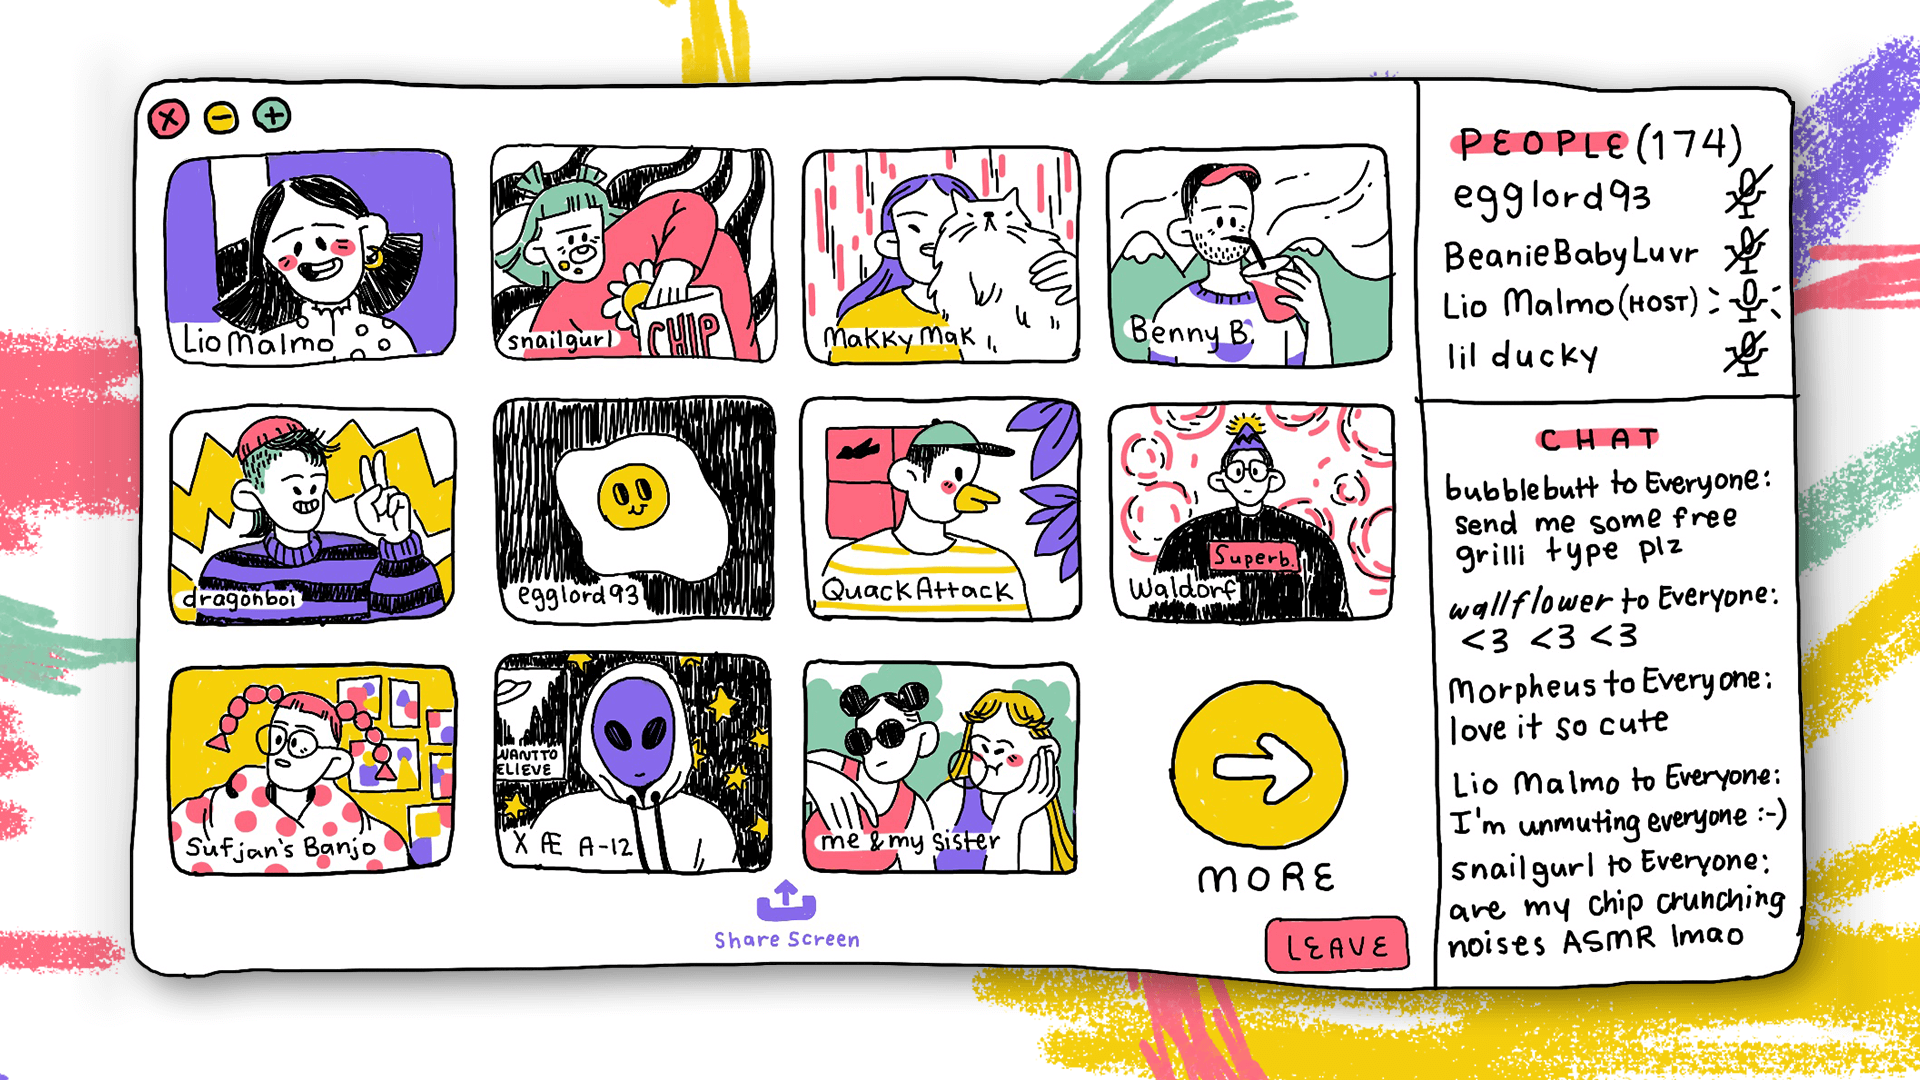 Lio Malmo
snailgurl
CHIP
Makky Mak
Benny B.
dragonboi
egglord93
QuackAttack
Superb.
Waldorf
Sufjan's Banjo
WANT TO
ELIEVE
X Æ A-12
me & my sister
MORE
Share Screen
LEAVE
PEOPLE (174)
egglord93
BeanieBabyLuvr
Lio Malmo (HOST)
lil ducky
CHAT
bubblebutt to Everyone:
send me some free
grilli type plz
wallflower to Everyone:
<3 <3 <3
Morpheus to Everyone:
love it so cute
Lio Malmo to Everyone:
I'm unmuting everyone :-)
snailgurl to Everyone:
are my chip crunching
noises ASMR lmao